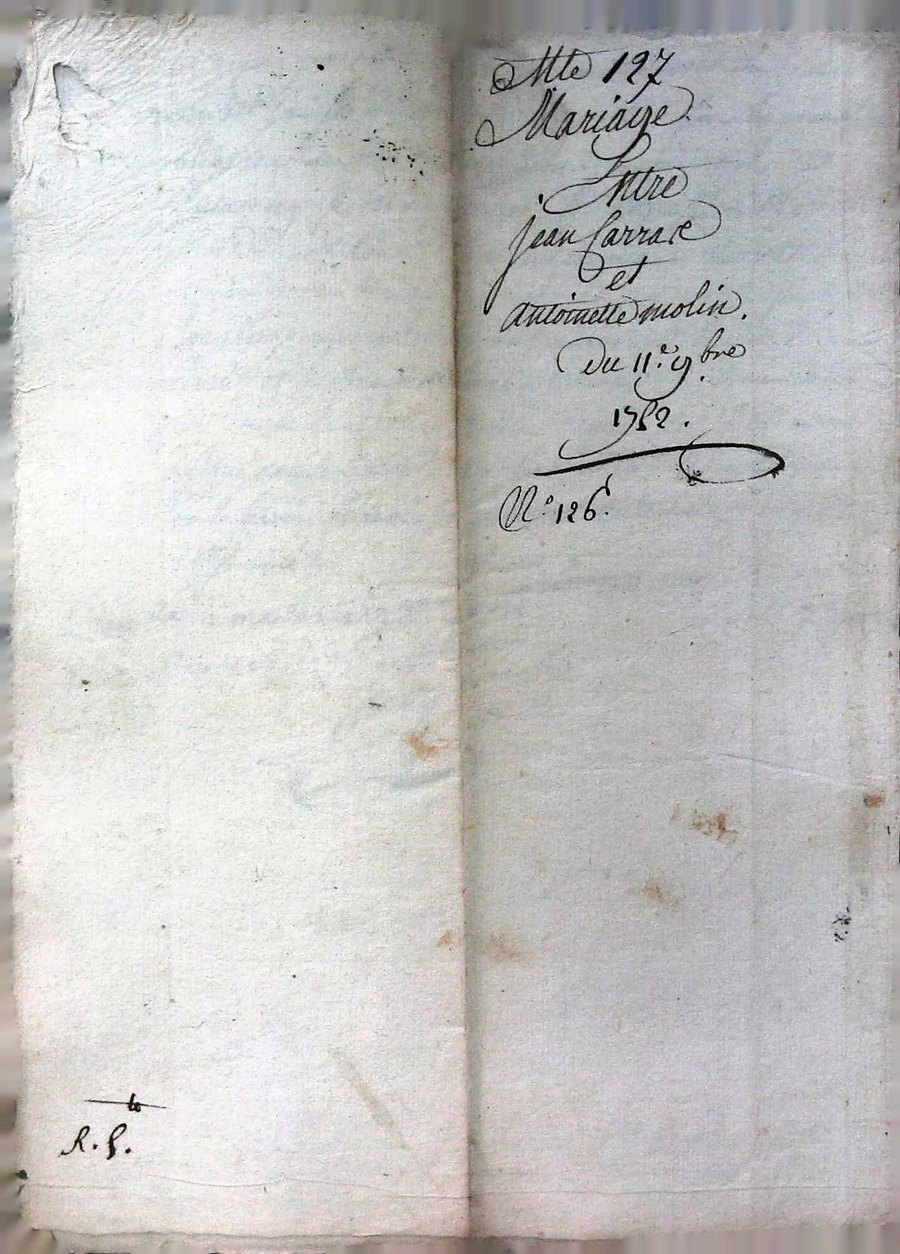 Cotte 127
Mariage
Entre
jean Carrare
et
antoinette molin.
Du 11.e 9.bre
1752.
N.o 126.
R. S.